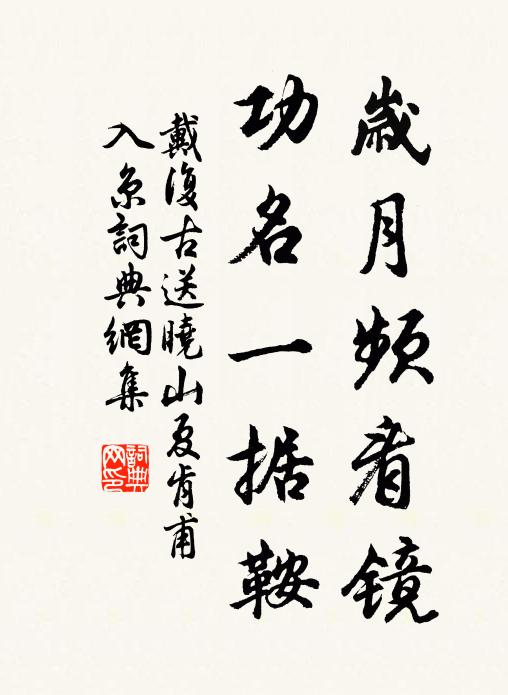 歲月頻看鏡
功名一据鞍
戴復古送曉山夏肯甫
入京詞典網集
詞典網印